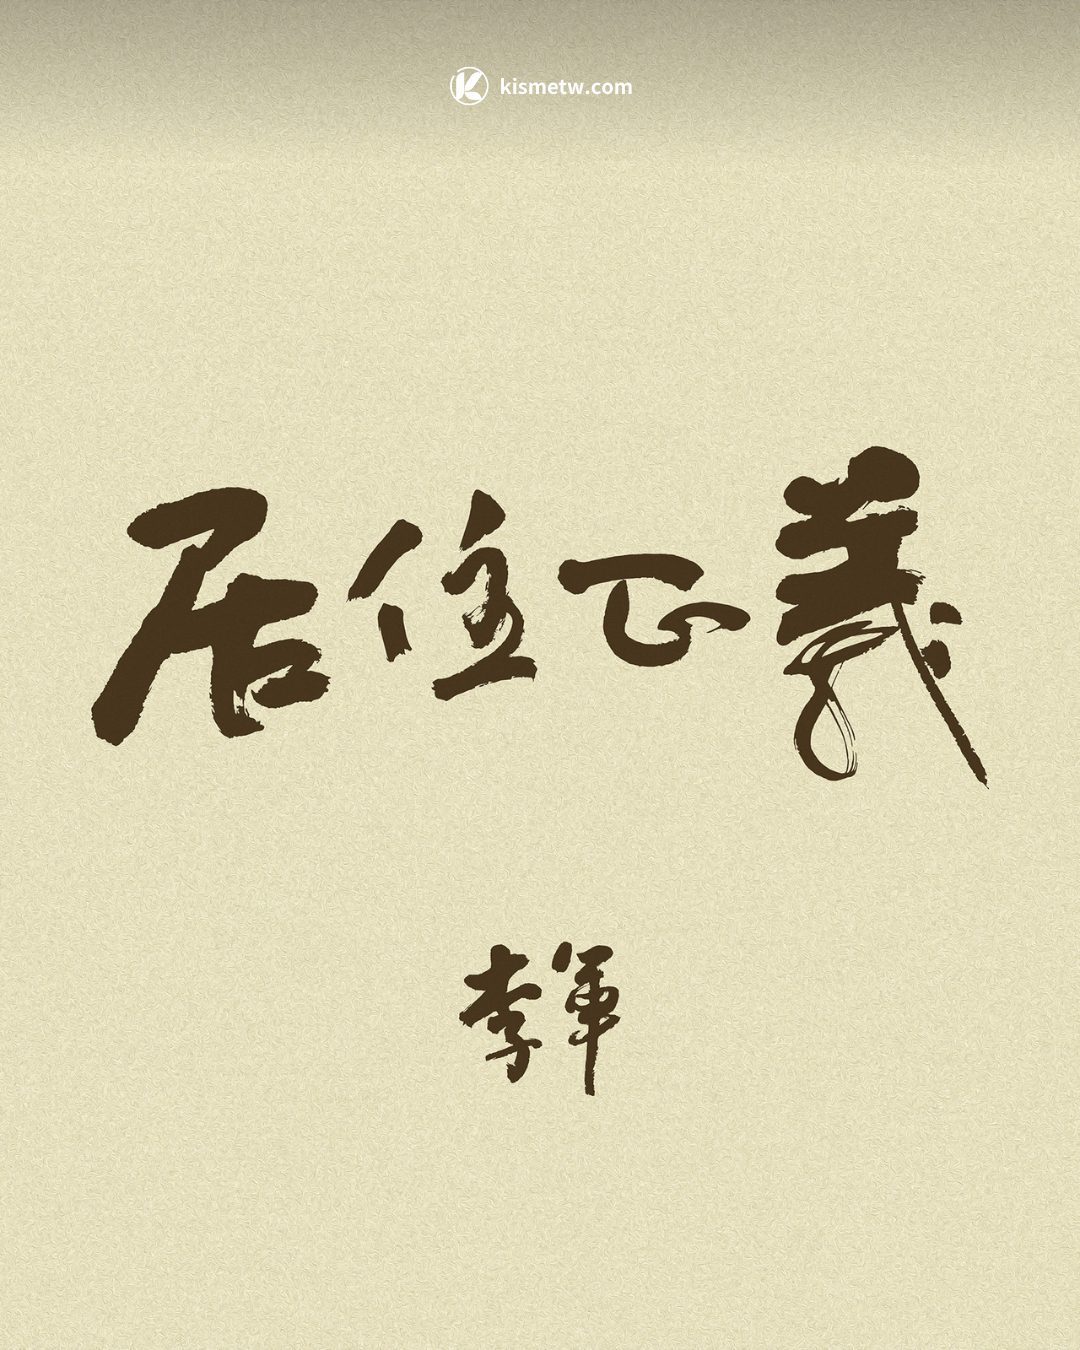 kismetw.com
居住正義
李軍